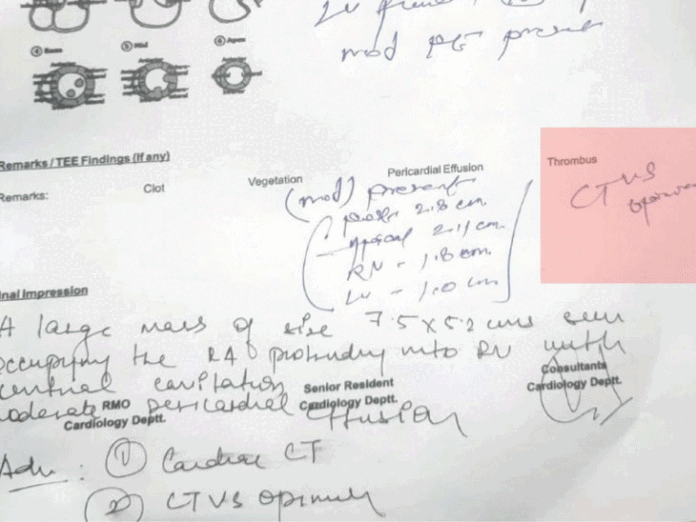 LV
mod PE present
④ Base ⑤ Mid ⑥ Apex
Remarks / TEE Findings (If any)
Remarks: Clot Vegetation Pericardial Effusion Thrombus
(mod) present
CTVS
2.8 cm.
apical 2.11 cm.
RV - 1.8 cm.
LV - 1.0 cm
inal Impression
A large mass of size 7.5x5.2 cms seen
occupying the RA & protruding into RV with
central cavitation
Senior Resident
Cardiology Deptt.
Consultants
Cardiology Deptt.
moderate pericardial effusion
RMO
Cardiology Deptt.
Adv: ① Cardiac CT
② CTVS opinion